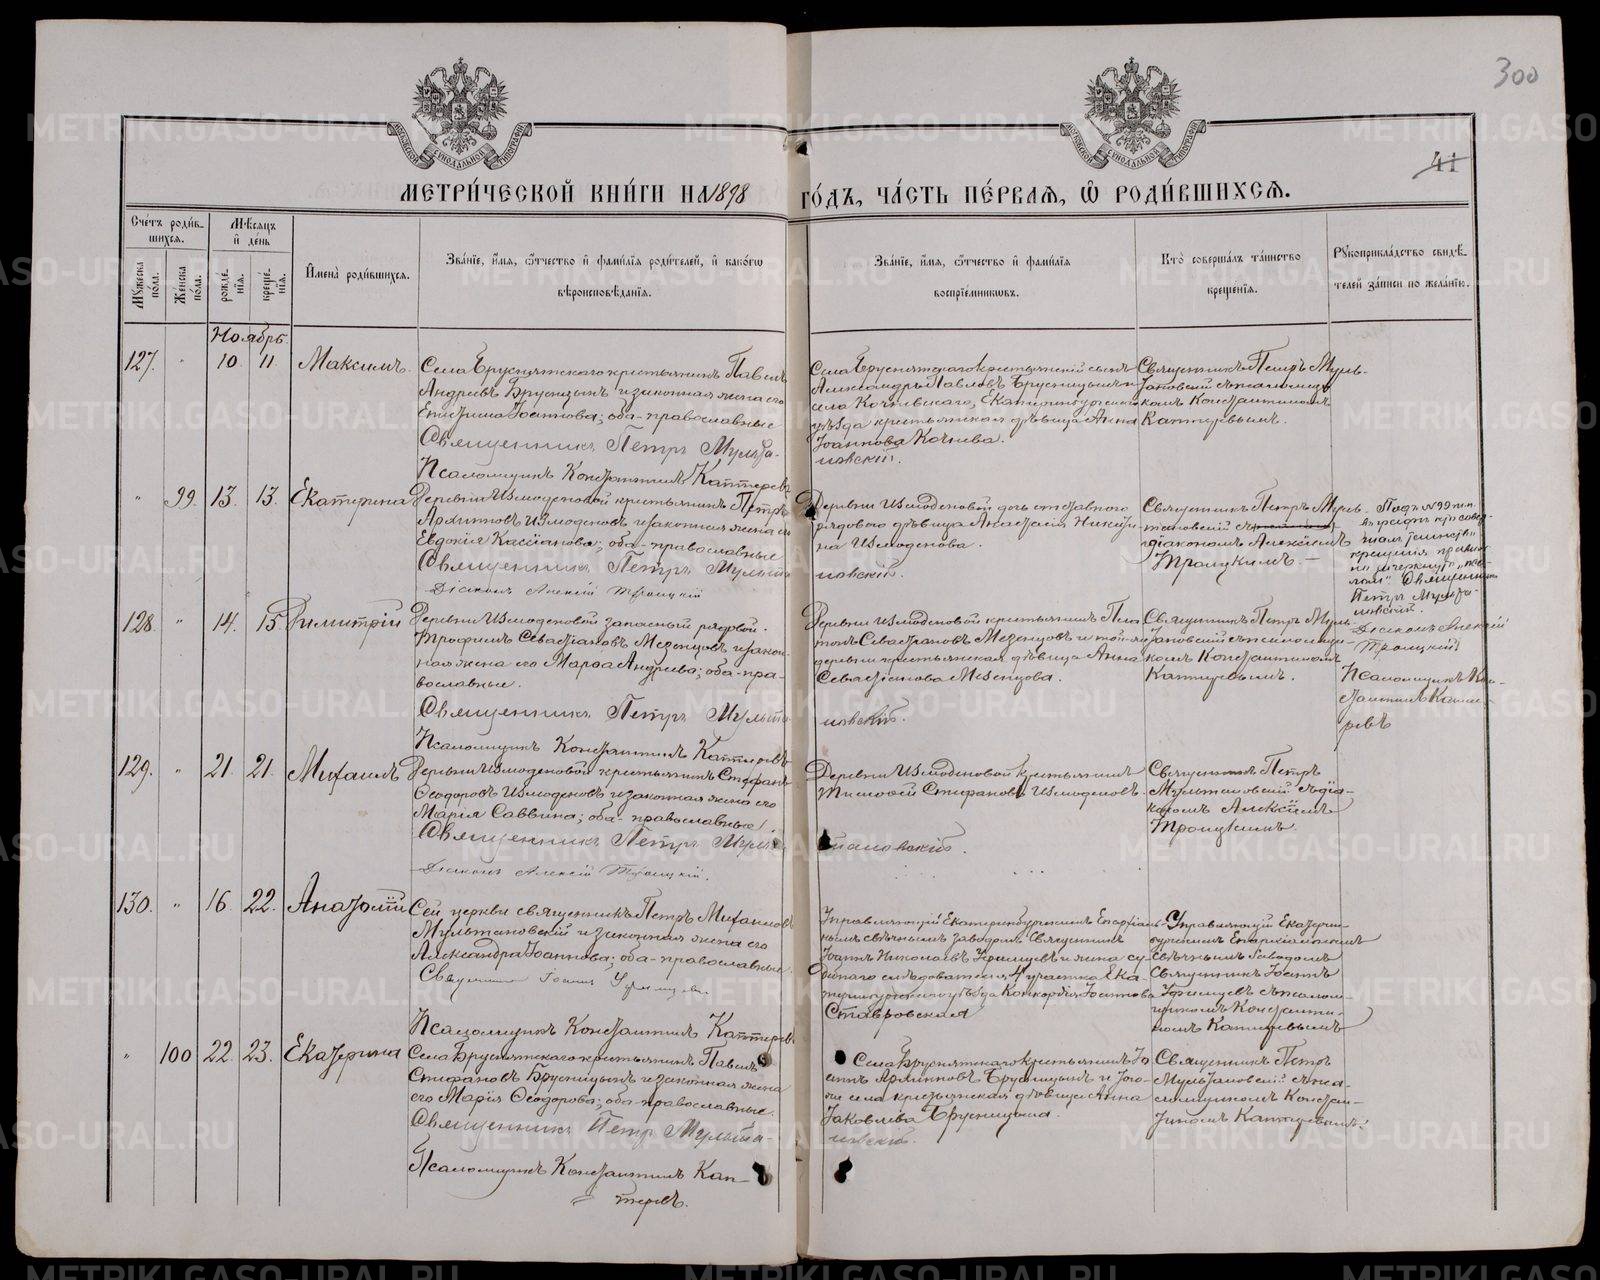 300
41
МЕТРИ́ЧЕСКОЙ КНИ́ГИ НА 1898 ГО́ДЪ, ЧА́СТЬ ПЕ́РВАѦ, Ѡ РОДИ́ВШИХСѦ.
Сче́тъ роди́в-
шихсѧ.
Мꙋ́жеска по́ла.
Же́нска по́ла.
Мѣ́сѧцъ
и҆ де́нь
рожде́нїѧ.
креще́нїѧ.
И҆мена̀ роди́вшихсѧ.
Зва́нїе, и҆́мѧ, ѻ҆́тчество и҆ фами́лїѧ роди́телей, и҆ како́гѡ
вѣроисповѣ́данїѧ.
Зва́нїе, и҆́мѧ, ѻ҆́тчество и҆ фами́лїѧ
воспрїе́мникѡвъ.
Кто̀ соверша́лъ та́инство
креще́нїѧ.
Рꙋкоприкла́дство свидѣ́-
телей за́писи по жела́нїю.
Ноябрь
127. " 10 11 Максимъ.
Села Бруснятскаго крестьянинъ Павелъ
Андреевъ Брусницынъ и законная жена его
Екатерина Іоаннова; оба православные
Священникъ Петръ Мульта-
новскій.
Псаломщикъ Константинъ Каптеревъ
Села Бруснятскаго крестьянскій сынъ
Александръ Павловъ Брусницынъ и
села Кочневскаго, Екатеринбургскаго
уѣзда крестьянская дѣвица Анна
Іоаннова Кочнева.
Священникъ Петръ Муль-
тановскій съ псаломщи-
комъ Константиномъ
Каптеревымъ.
" 99. 13. 13. Екатерина
Деревни Измоденовой крестьянинъ Петръ
Архиповъ Измоденовъ и законная жена его
Евдокія Кассіанова; оба православные
Священникъ Петръ Мульта-
новскій.
Діаконъ Алексій Троицкій
Деревни Измоденовой дочь отставного
рядового дѣвица Анастасія Никити-
на Измоденова.
Священникъ Петръ Муль-
тановскій съ
діакономъ Алексіемъ
Троицкимъ. —
Священникъ
Петръ Мульта-
новскій.
Діаконъ Алексій
Троицкій
Псаломщикъ Кон-
стантинъ Капте-
ревъ
128. " 14. 15. Димитрій
Деревни Измоденовой запасный рядовой
Трофимъ Севастіановъ Мезенцовъ и закон-
ная жена его Марѳа Андреева; оба пра-
вославные.
Священникъ Петръ Мульта-
новскій.
Псаломщикъ Константинъ Каптеревъ
Деревни Измоденовой крестьянинъ Пла-
тонъ Севастіановъ Мезенцовъ и той же
деревни крестьянская дѣвица Анна
Севастіанова Мезенцова.
Священникъ Петръ Муль-
тановскій съ псаломщи-
комъ Константиномъ
Каптеревымъ.
129. " 21. 21. Михаилъ
Деревни Измоденовой крестьянинъ Стефанъ
Ѳеодоровъ Измоденовъ и законная жена его
Марія Саввина; оба православные.
Священникъ Петръ Муль-
тановскій.
Діаконъ Алексій Троицкій.
Деревни Измоденовой крестьянинъ
Тимоѳей Стефановъ Измоденовъ.
Священникъ Петръ
Мультановскій съ діа-
кономъ Алексіемъ
Троицкимъ.
130. " 16. 22. Анатолій
Сей церкви священникъ Петръ Михаиловъ
Мультановскій и законная жена его
Александра Іоаннова; оба православные.
Священникъ Іоаннъ
Псаломщикъ Константинъ Каптеревъ
Управляющій Екатеринбургскимъ Епархіаль-
нымъ свѣчнымъ заводомъ Священникъ
Іоаннъ Николаевъ и жена су-
дебнаго слѣдователя 4 участка Ека-
теринбургскаго уѣзда Конкордія Іоаннова
Ставровская
Управляющій Екатерин-
бургскимъ Епархіальнымъ
свѣчнымъ заводомъ
Священникъ Іоаннъ
съ псалом-
щикомъ Константи-
номъ Каптеревымъ
" 100 22. 23. Екатерина
Села Бруснятскаго крестьянинъ Павелъ
Стефановъ Брусницынъ и законная жена
его Марія Ѳеодорова; оба православные.
Священникъ Петръ Мульта-
новскій.
Псаломщикъ Константинъ Кап-
теревъ.
Села Бруснятскаго крестьянинъ Іо-
аннъ Архиповъ Брусницынъ и того-
же села крестьянская дѣвица Анна
Іаковлева Брусницына.
Священникъ Петръ
Мультановскій съ пса-
ломщикомъ Констан-
тиномъ Каптеревымъ.
METRIKI.GASO-URAL.RU